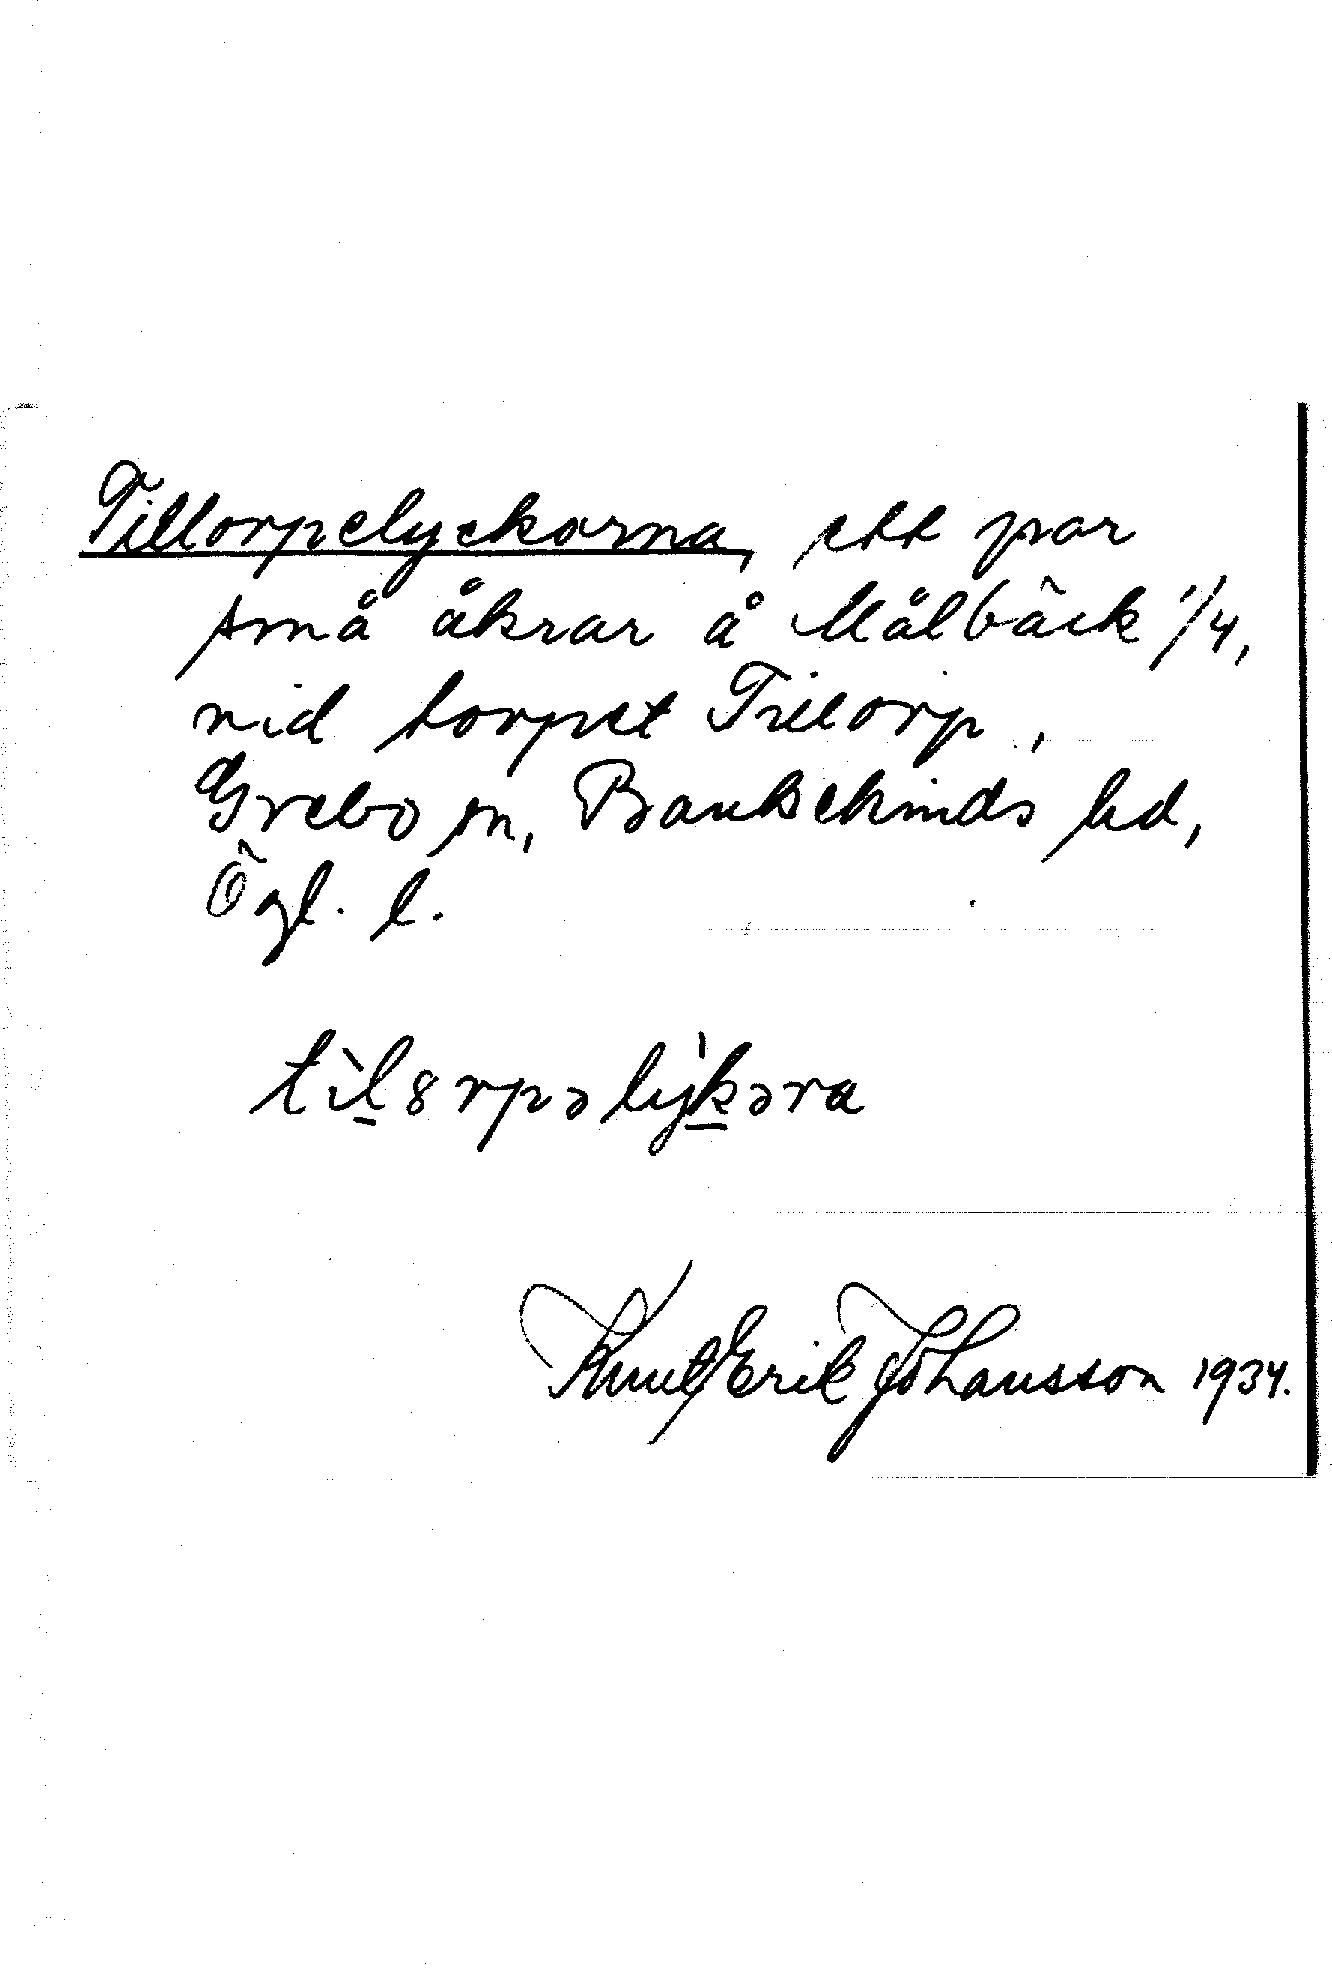 Tillorpelyckorna, ett par
små åkrar å Målbäck 1/4,
vid torpet Tillorp,
Grebo sn, Bankekinds hd,
Ögl. l.
tìl8rpəlýkəra
Knut Erik Johansson 1934.